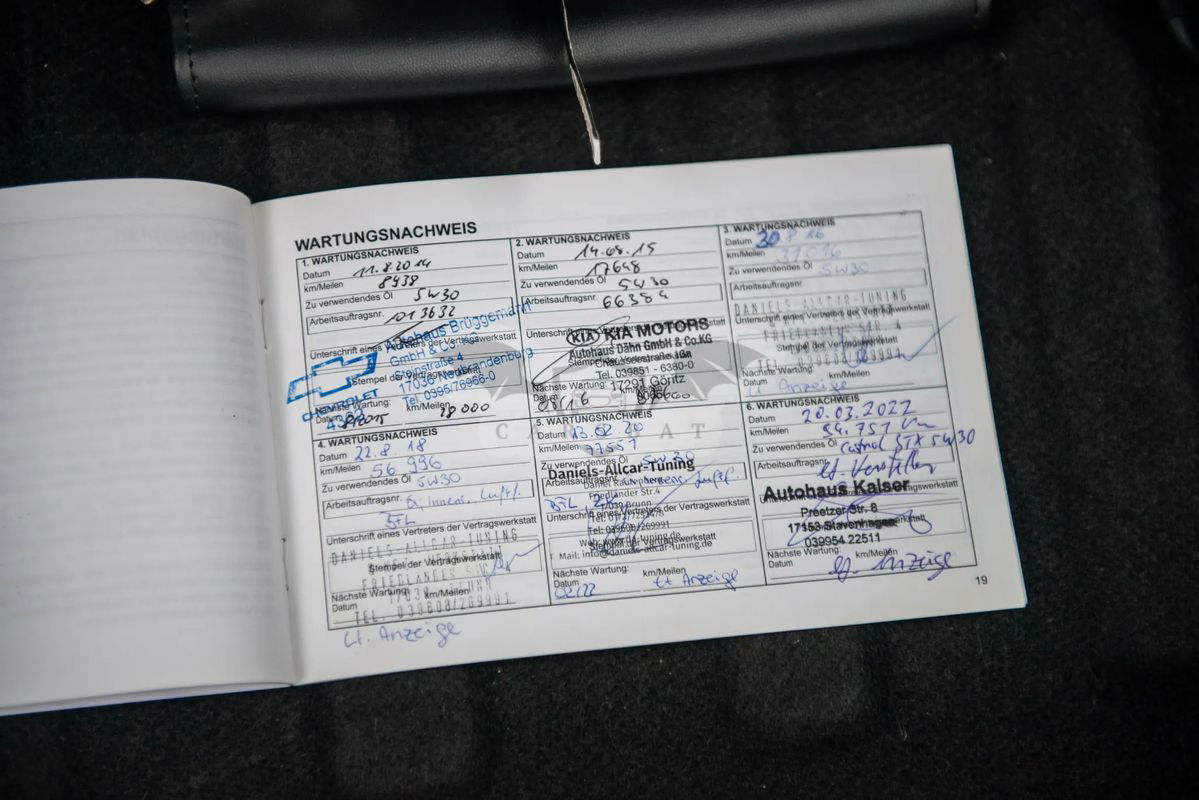 WARTUNGSNACHWEIS
1. WARTUNGSNACHWEIS
Datum 11.8.2014
km/Meilen 8938
Zu verwendendes Öl 5W30
Arbeitsauftragsnr. 1013632
Unterschrift eines Vertreters der Vertragswerkstatt
Autohaus Brüggemann
GmbH & Co. KG
Steinstraße 4
17036 Neubrandenburg
Tel. 0395/76966-0
CHEVROLET
Stempel der Vertragswerkstatt
Nächste Wartung: km/Meilen
Datum 28000
2. WARTUNGSNACHWEIS
Datum 14.08.15
km/Meilen 17648
Zu verwendendes Öl 5W30
Arbeitsauftragsnr. 66384
Unterschrift eines Vertreters der Vertragswerkstatt
KIA KIA MOTORS
Autohaus Dähn GmbH & Co.KG
Tel. 039851 - 6380-0
17291 Göritz
Nächste Wartung: km/Meilen
Datum 08/16
3. WARTUNGSNACHWEIS
Datum 30 8 16
km/Meilen
Zu verwendendes Öl 5W30
Arbeitsauftragsnr.
DANIELS-ALLCAR-TUNING
Unterschrift eines Vertreters der Vertragswerkstatt
FRIEDLANDER STR. 4
Stempel der Vertragswerkstatt
Nächste Wartung: km/Meilen
Datum Lt Anzeige
4. WARTUNGSNACHWEIS
Datum 22.8.18
km/Meilen 56 996
Zu verwendendes Öl 5W30
Arbeitsauftragsnr. Öl, Innenr. Luftf.
BFL
Unterschrift eines Vertreters der Vertragswerkstatt
DANIELS-ALLCAR-TUNING
Stempel der Vertragswerkstatt
Nächste Wartung: km/Meilen
Datum
TEL. 039608/269991
Lt. Anzeige
5. WARTUNGSNACHWEIS
Datum 13.02.20
km/Meilen 77557
Zu verwendendes Öl 5W30
Daniels-Allcar-Tuning
Arbeitsauftragsnr.
Daniel Rautenberg
Friedländer Str.4
17039 Brunn
Unterschrift eines Vertreters der Vertragswerkstatt
Tel. 039608/269991
Stempel der Vertragswerkstatt
Mail: info@daniels-allcar-tuning.de
Nächste Wartung: km/Meilen
Datum 02/22 Lt Anzeige
6. WARTUNGSNACHWEIS
Datum 20.03.2022
km/Meilen 94.757 km
Zu verwendendes Öl Castrol STX 5W30
Arbeitsauftragsnr. lt. Hersteller
Unterschrift eines Vertreters der Vertragswerkstatt
Autohaus Kaiser
Preetzer Str. 8
17153 Stavenhagen
039954 22511
Nächste Wartung: km/Meilen
Datum lt. Anzeige
19